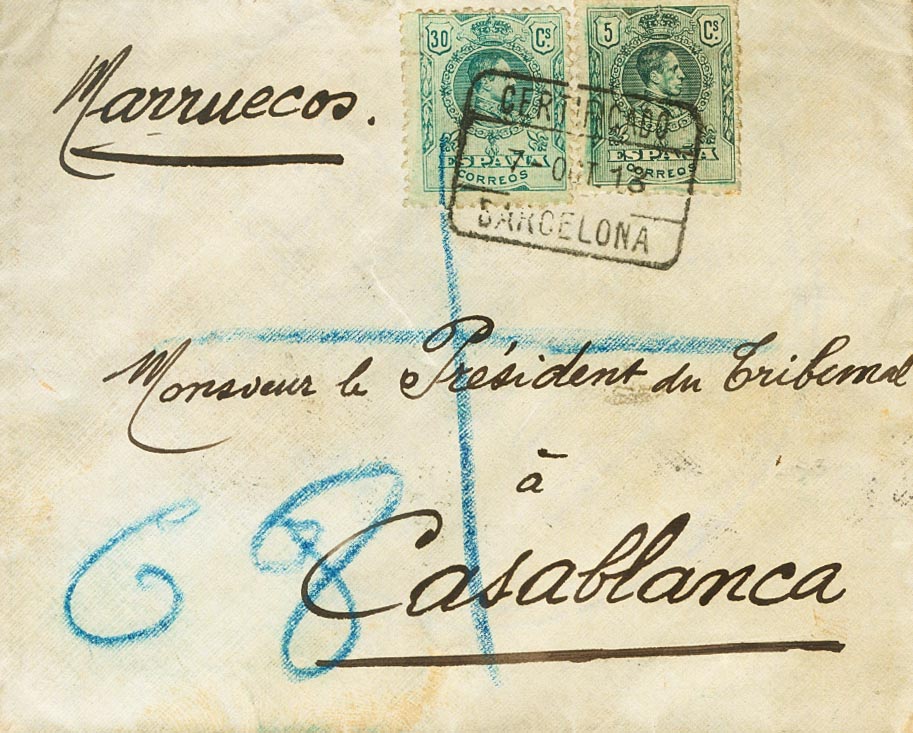 30 Cs
ESPAÑA
CORREOS
5 Cs
ESPAÑA
CORREOS
CERTIFICADO
7- OCT. 18
BARCELONA
Marruecos.
Monsieur le Président du Tribunal
à
Casablanca
68